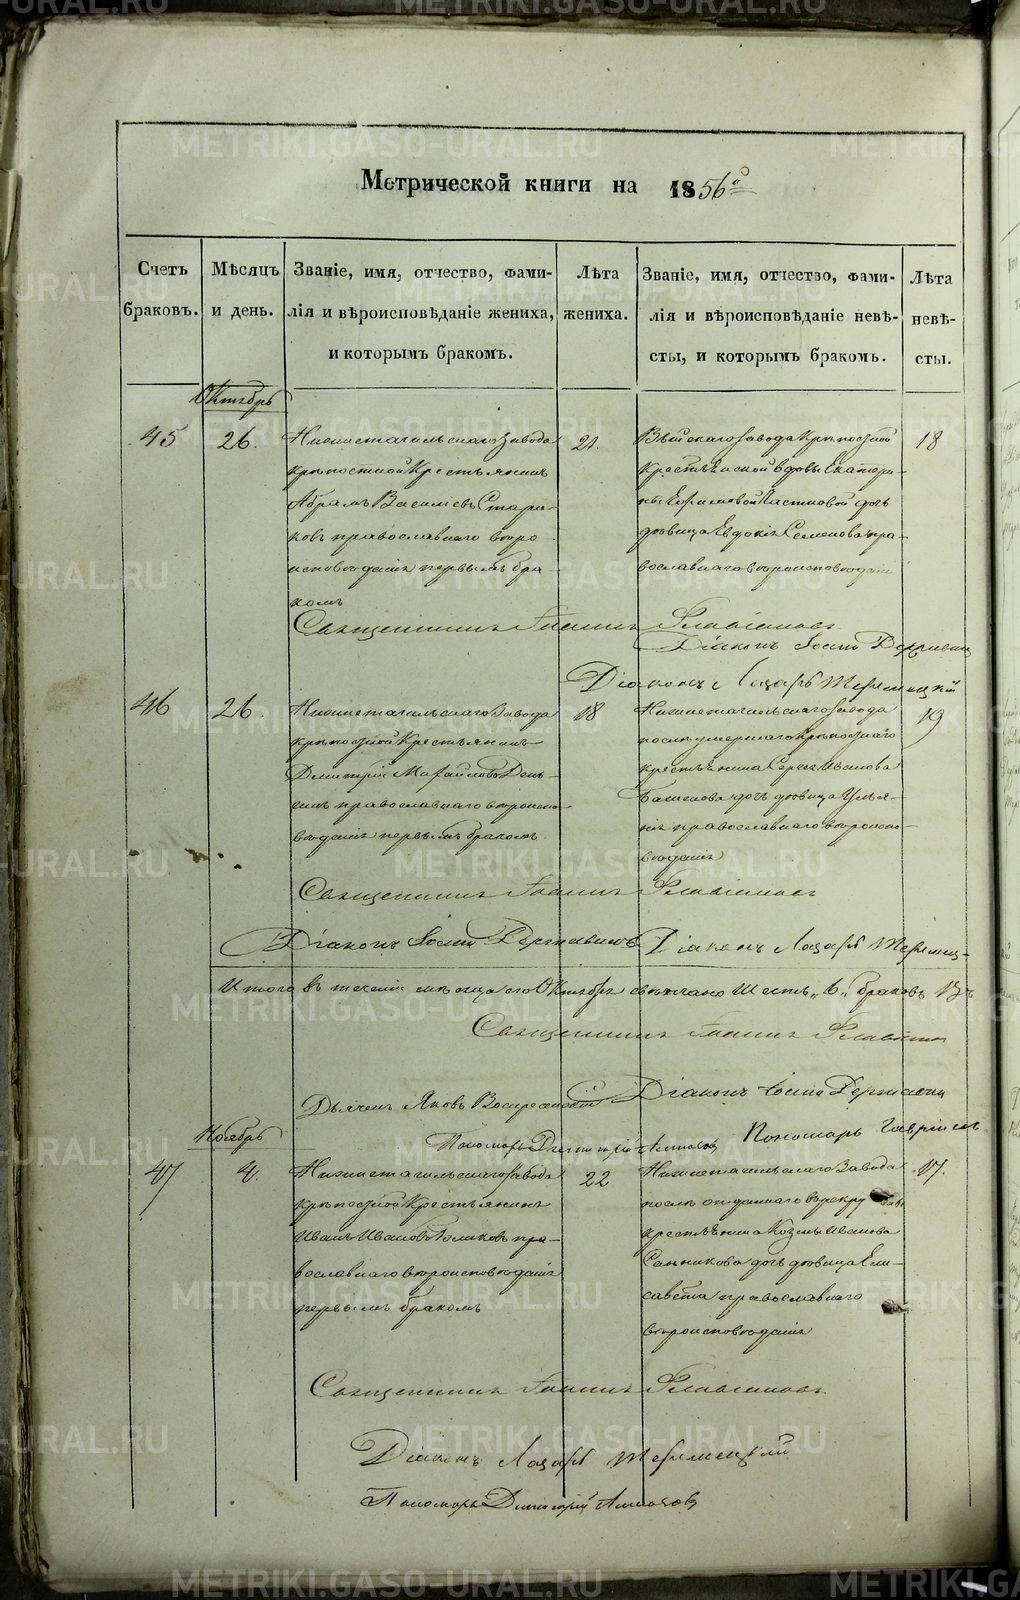 METRIKI.GASO-URAL.RU
Метрической книги на 1856й
Счетъ браковъ.
Мѣсяцъ и день.
Званіе, имя, отчество, фами-
лія и вѣроисповѣданіе жениха,
и которымъ бракомъ.
Лѣта
жениха.
Званіе, имя, отчество, фами-
лія и вѣроисповѣданіе невѣ-
сты, и которымъ бракомъ.
Лѣта
невѣ-
сты.
Октябрь
45
26.
Нижнетагильскаго завода
крѣпостной Крестьянинъ
Абрамъ Васильевъ Стари-
ковъ православнаго вѣро
исповѣданія первымъ бра-
комъ
21.
завода Крѣпостной
Крестьянской вдовы Екатери-
ны Ефимовой дочь
дѣвица Евдокія Семенова пра-
вославнаго вѣроисповѣданія
18
Священникъ Іоаннъ
Діаконъ Іосифъ
Діаконъ Лазарь
46
26.
Нижнетагильскаго Завода
крѣпостной Крестьянинъ
Димитрій Михайловъ
православнаго вѣроиспо-
вѣданія первымъ бракомъ
18
Нижнетагильскаго завода
послѣ умершаго крѣпостнаго
крестьянина Сергея Иванова
дочь дѣвица Улья-
нія православнаго вѣроиспо-
вѣданія
19
Священникъ Іоаннъ
Діаконъ Іосифъ Державинъ Діаконъ Лазарь
Итого въ теченіи мѣсяца Октября свѣнчано Шесть „6„ браковъ
Священникъ Іоаннъ
Дьячекъ Яковъ Воскресенскій Діаконъ Іосифъ Державинъ
Пономарь Димитрій Пономарь Гавріилъ
Ноябрь
47
4.
Нижнетагильскаго завода
крѣпостной Крестьянинъ
Иванъ Ивановъ Голиковъ пра-
вославнаго вѣроисповѣданія
первымъ бракомъ
22
Нижнетагильскаго Завода
послѣ отданнаго в рекруты
крестьянина Козмы Иванова
Санникова дочь дѣвица Ели-
савета православнаго
вѣроисповѣданія
17.
Священникъ Іоаннъ
Діаконъ Лазарь
Пономарь Димитрій